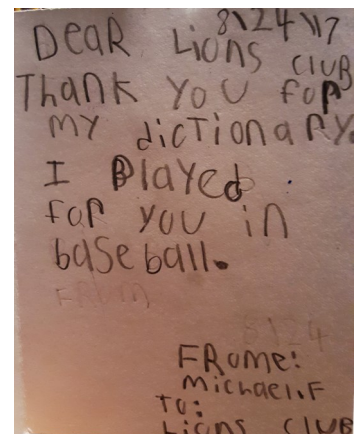 8\24\17
DEaR Lions CLUB
THanK YOU foR
my dicTionaRY
I Played
foR you in
baseball.
FRom
8\24
FRome:
Michael.F
To:
Lions CLUB